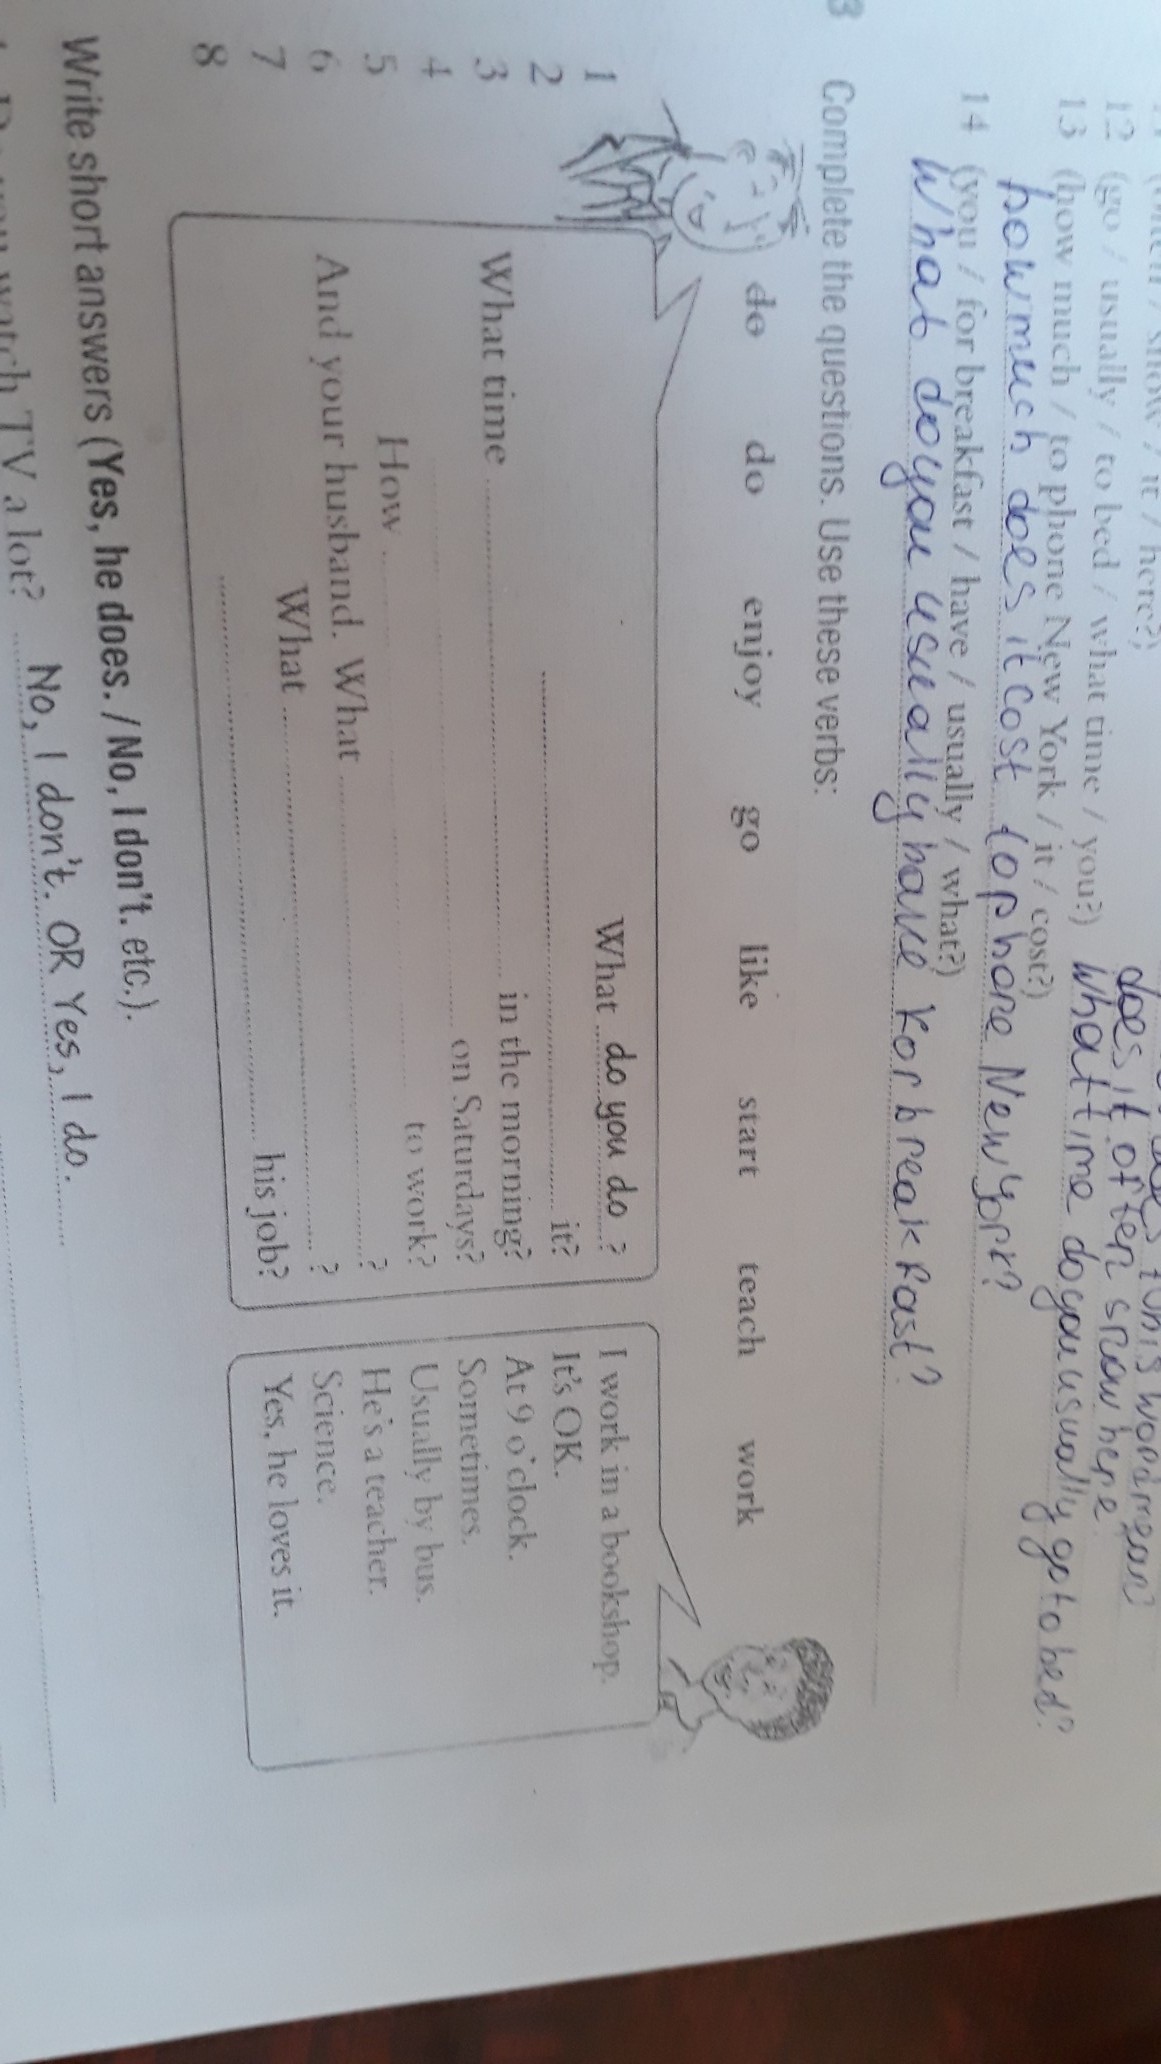 12 (go / usually / to bed / what time / you?) what time do you usually go to bed?
does it often snow here
13 (how much / to phone New York / it / cost?)
how much does it cost to phone New York?
14 (you / for breakfast / have / usually / what?)
What do you usually have for breakfast?
3 Complete the questions. Use these verbs:
do do enjoy go like start teach work
1 What do you do ? I work in a bookshop.
2 it? It's OK.
3 What time in the morning? At 9 o'clock.
4 on Saturdays? Sometimes.
5 How to work? Usually by bus.
6 And your husband. What ? He's a teacher.
7 What ? Science.
8 his job? Yes, he loves it.
Write short answers (Yes, he does. / No, I don't. etc.).
watch TV a lot? No, I don't. OR Yes, I do.